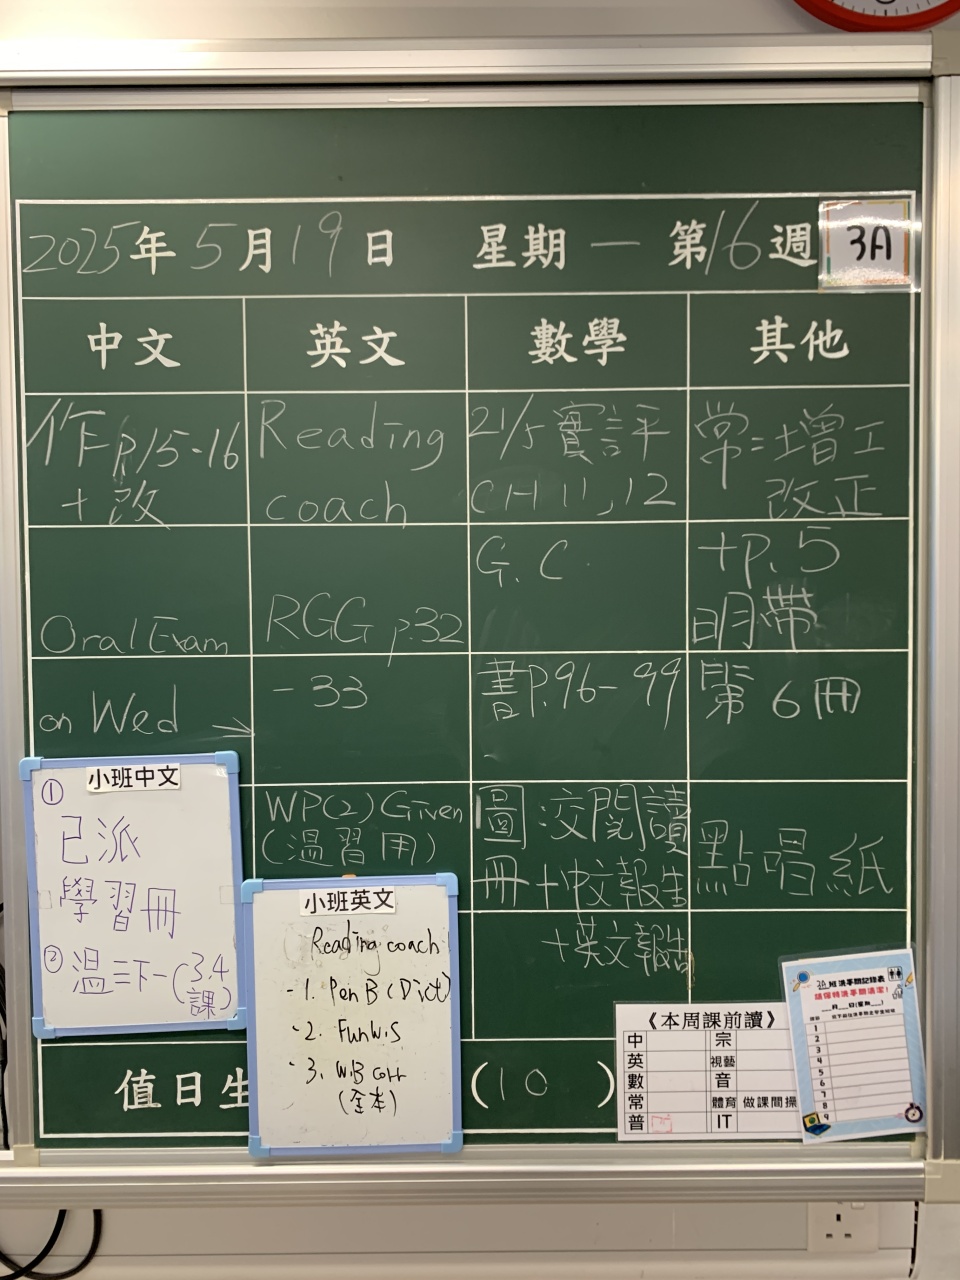 2025年5月19日 星期一 第16週 3A
中文 英文 數學 其他
作P.15-16
+改
Reading
coach
21/5實評
CH 11,12
常=增工
改正
Oral Exam
on Wed →
RGG p.32
- 33
G.C.
書P.96-99
+P.5
明帶
第6冊
WP(2) Given
(溫習用)
圖:交閱讀
冊+中文報告
+英文報告
點唱紙
小班中文
①
已派
學習冊
② 溫三下一(3.4
課)
小班英文
Reading coach
- 1. Pen B (Dict)
- 2. Fun W.S
- 3. W.B corr
(全本)
值日生
(10)
《本周課前讀》
中 宗
英 視藝
數 音
常 體育 做課間操
普 IT
3A班洗手間記錄表
請保持洗手間清潔!
__月__日(星期__)
1
2
3
4
5
6
7
8
9